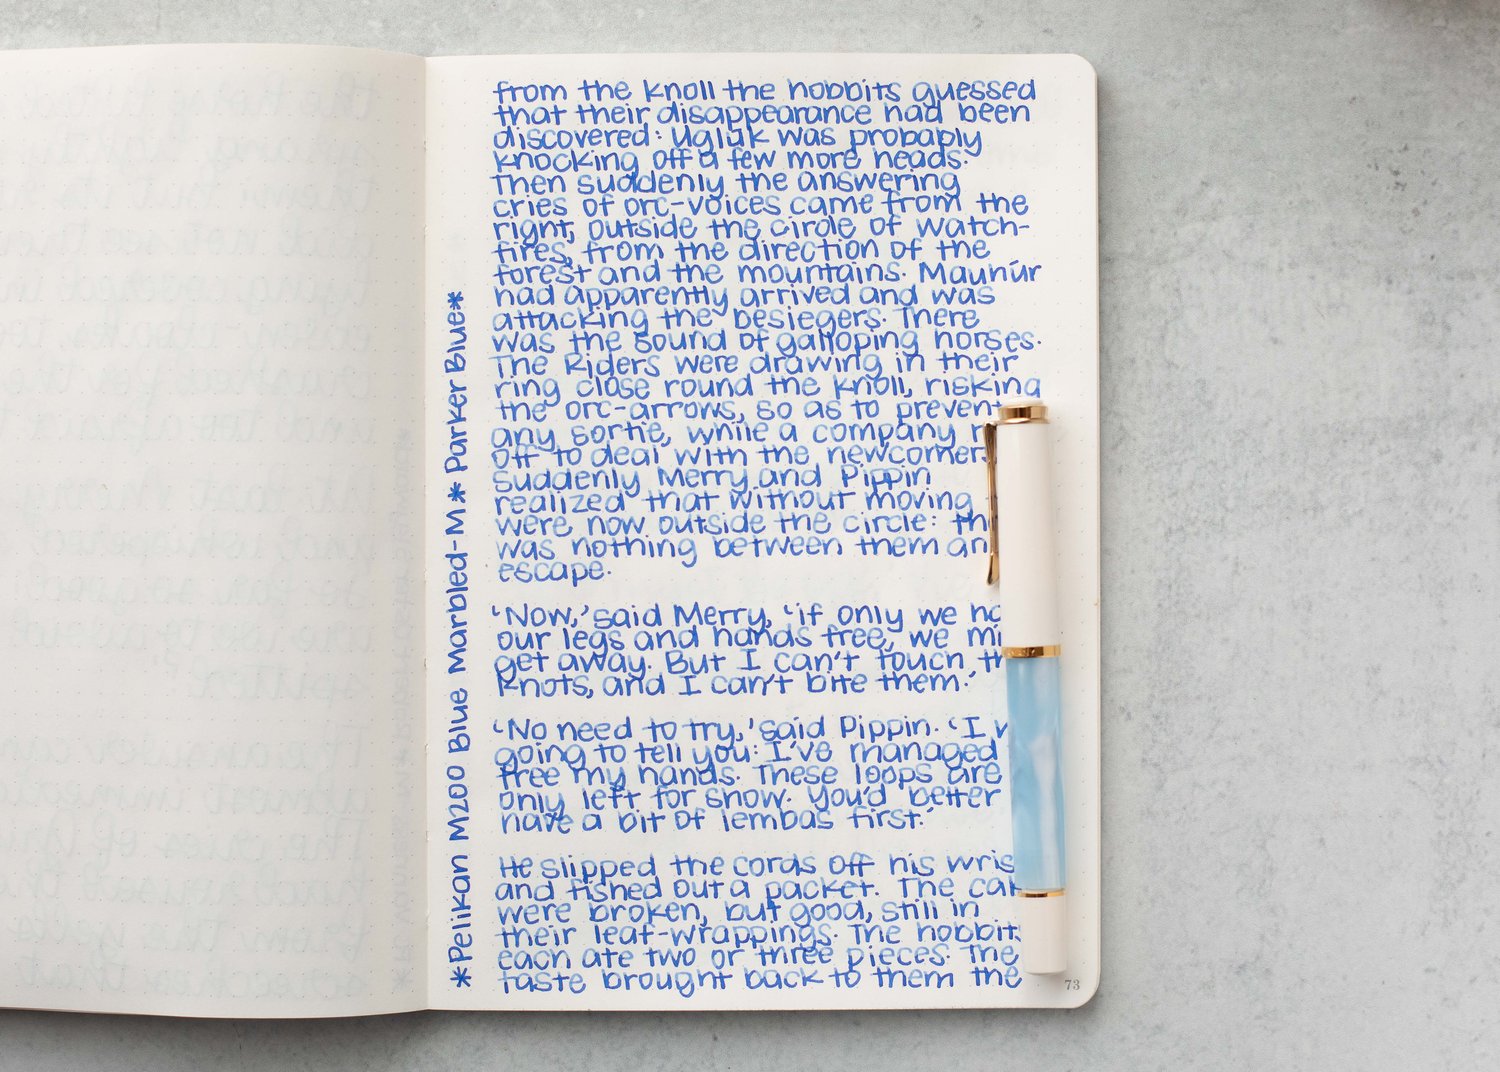 from the knoll the hobbits guessed
that their disappearance had been
discovered: Uglúk was probably
knocking off a few more heads.
Then suddenly the answering
cries of orc-voices came from the
right, outside the circle of watch-
fires, from the direction of the
forest and the mountains. Mauhúr
had apparently arrived and was
attacking the besiegers. There
was the sound of galloping horses.
The Riders were drawing in their
ring close round the knoll, risking
the orc-arrows, so as to prevent
any sortie, while a company
off to deal with the newcomers.
Suddenly Merry and Pippin
realized that without moving
were now outside the circle:
was nothing between them
escape.
‘Now,’ said Merry, ‘if only we
our legs and hands free, we
get away. But I can't touch
knots, and I can't bite them.’
‘No need to try,’ said Pippin. ‘I
going to tell you: I've managed
free my hands. These loops are
only left for show. You'd better
have a bit of lembas first.’
He slipped the cords off his
and fished out a packet. The
were broken, but good, still in
their leaf-wrappings. The hobbits
each ate two or three pieces. The
taste brought back to them the
*Pelikan M200 Blue Marbled-M * Parker Blue*
73